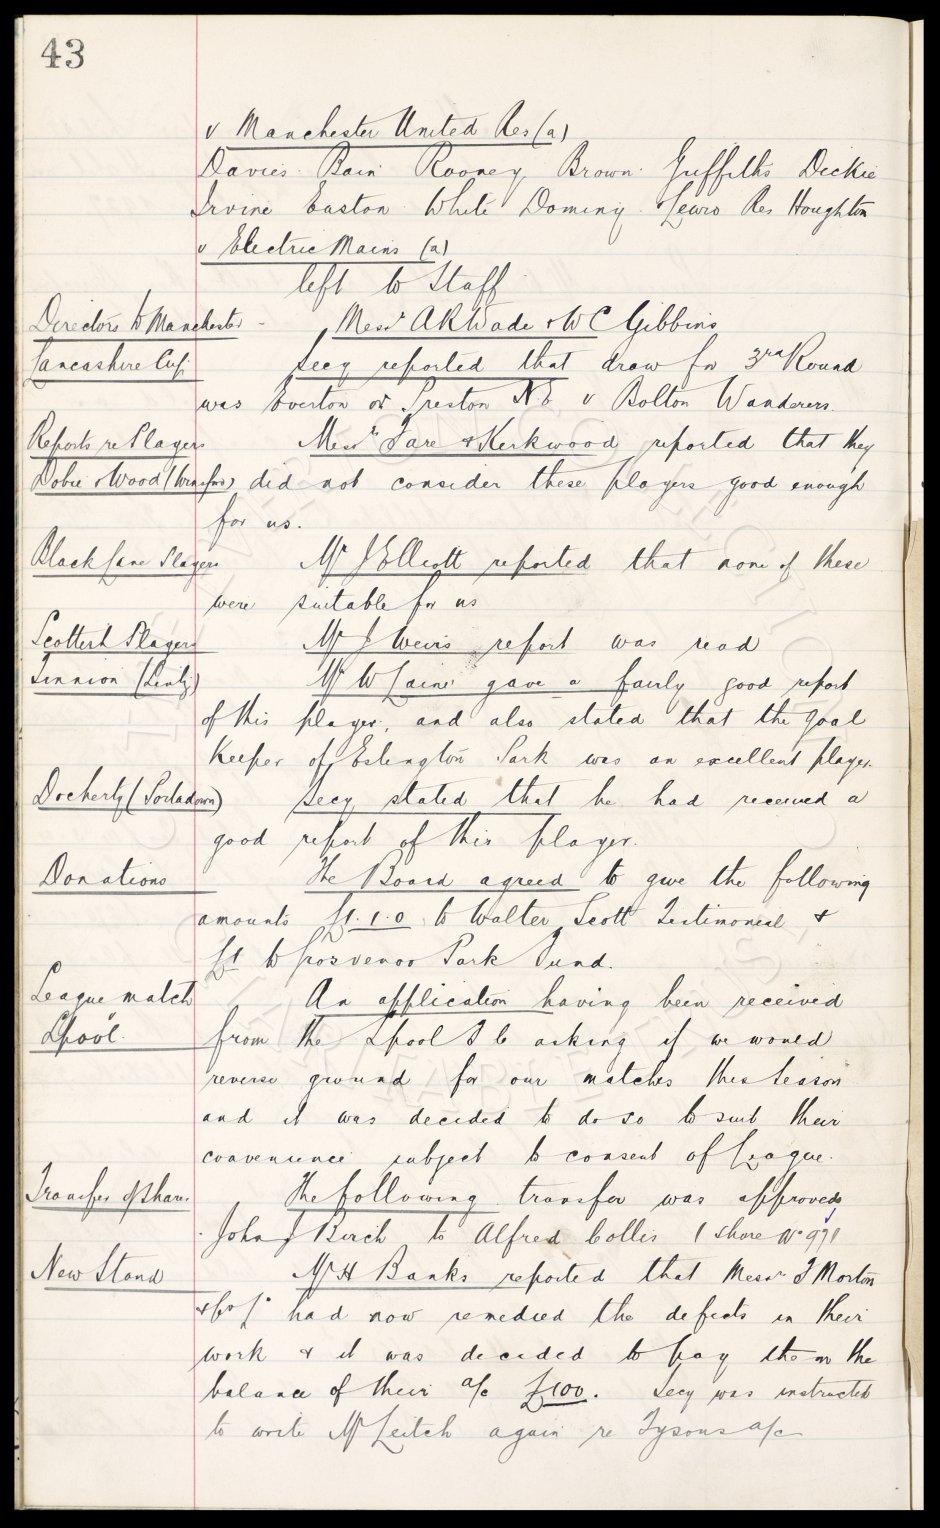 43
v Manchester United Res (a)
Davies Bain Rooney Brown Griffiths Dickie
Irvine Easton White Dominy Lewis Res Houghton
v Electric Mains (a)
left to Staff
Directors to Manchester - Messrs A R Wade & W C Gibbins
Lancashire Cup Secy reported that draw for 3rd Round
was Everton or Preston N E v Bolton Wanderers.
Reports re Players Messrs Fare & Kirkwood reported that they
Dobie & Wood (Winsford) did not consider these players good enough
for us.
Black Lane Players Mr J Elliott reported that none of these
were suitable for us
Scottish Players Mr J Weirs report was read
Tinnion (Lintz) Mr W Laine gave a fairly good report
of this player, and also stated that the Goal
Keeper of Eslington Park was an excellent player.
Docherty (Portadown) Secy stated that he had received a
good report of this player.
Donations The Board agreed to give the following
amounts £1.1.0 to Walter Scott Testimonial &
£1 to Grosvenor Park Fund.
League match An application having been received
L'pool. from the L'pool F C asking if we would
reverse ground for our matches this season
and it was decided to do so to suit their
convenience subject to consent of League.
Transfer of Shares The following transfer was approved
John J Birch to Alfred Collis (share No 97)
New Stand Mr H Banks reported that Messrs F Morton
& Co Ld had now remedied the defects in their
work & it was decided to pay them on the
balance of their a/c £100. Secy was instructed
to write Mr Leitch again re Tysons a/c